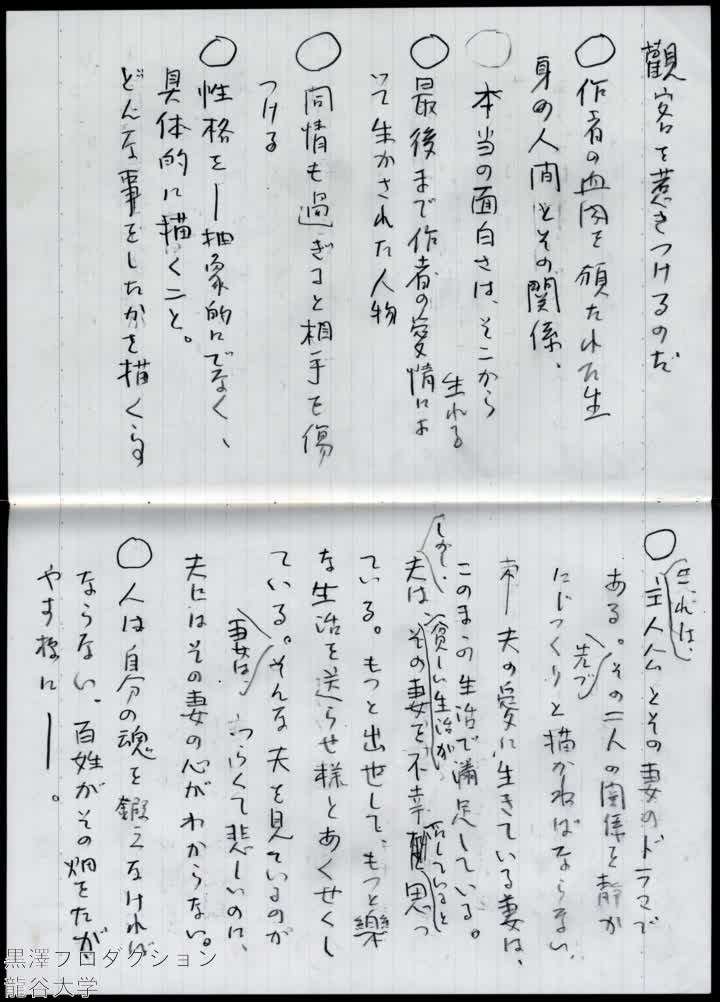 觀客を惹きつけるのだ
○作者の血肉を頒たれた生
身の人間とその関係、
○本当の面白さは、そこから
生れる
○最後まで作者の愛情によ
って生かされた人物
○同情も過ぎると相手を傷
つける
○性格を―抽象的にでなく、
具体的に描くこと。
どんな事をしたかを描く
○これは、主人公とその妻のドラマで
ある。その二人の関係を静か
にじっくりと先づ描かねばならない、
夫の愛に生きている妻は、
このまゝの生活で満足している。
しかし、夫は貧しい生活がその妻を不幸にしていると思っ
ている。もっと出世して、もっと樂
な生活を送らせ様とあくせくし
ている。そんな夫を見ているのが
妻は、つらくて悲しいのに、
夫にはその妻の心がわからない。
○人は自分の魂を鍛えなければ
ならない。百姓がその畑をたが
やす様に―。
黒澤プロダクション
龍谷大学